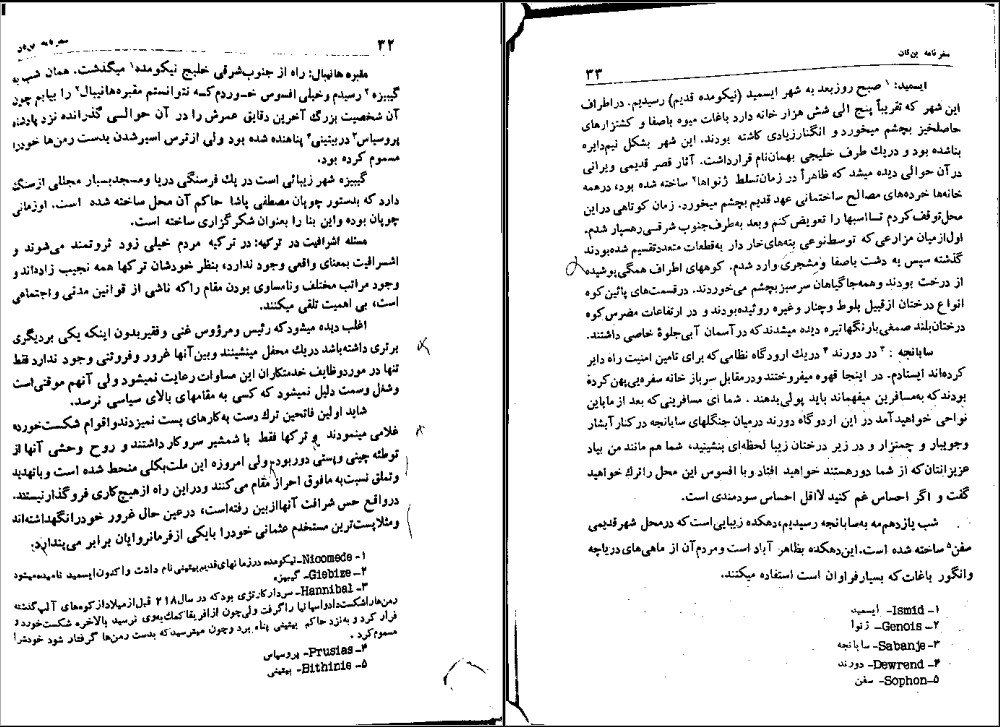 سفرنامه بن‌تان
۳۲
مقبره هانیبال: راه از جنوب‌شرقی خلیج نیکومده۱ میگذشت. همان شب به
گیبیزه۲ رسیدم وخیلی افسوس خوردم‌که نتوانستم مقبره‌هانیبال۳ را بیابم چون
آن شخصیت بزرگ آخرین دقایق عمرش را در آن حوالی گذرانده نزد پادشاه
پروسیاس۴ دربیتینی۵ پناهنده شده بود ولی ازترس اسیرشدن بدست رمن‌ها خودرا
مسموم کرده بود.
گیبیزه شهر زیبائی است در یك فرسنگی دریا ومسجدبسیار مجللی ازسنگ
دارد که بدستور چوپان مصطفی پاشا حاکم آن محل ساخته شده است. اوزمانی
چوپان بوده واین بنا را بعنوان شکرگزاری ساخته است.
مسئله اشرافیت در ترکیه: در ترکیه مردم خیلی زود ثروتمند می‌شوند و
اشرافیت بمعنای واقعی وجود ندارد، بنظر خودشان ترکها همه نجیب زاده‌اند و
وجود مراتب مختلف ونامساوی بودن مقام راکه ناشی از قوانین مدنی واجتماعی
است، بی اهمیت تلقی میکنند.
اغلب دیده میشودکه رئیس ومرؤوس غنی وفقیربدون اینکه یکی بردیگری
برتری داشته‌باشد دریك محفل مینشینند وبین‌آنها غرور وفروتنی وجود ندارد فقط
تنها در موردوظایف خدمتکاران این مساوات رعایت نمیشود ولی آنهم موقتی‌است
وشغل وسمت دلیل نمیشود که کسی به مقامهای بالای سیاسی نرسد.
شاید اولین فاتحین ترك دست به‌کارهای پست نمیزدندواقوام شکست‌خورده
غلامی مینمودند و ترکها فقط با شمشیر سروکار داشتند و روح وحشی آنها از
توطئه چینی وپستی دوربود. ولی امروزه این ملت‌بکلی منحط شده است وباتهدید
وتملق نسبت‌به مافوق احراز مقام می‌کنند ودراین راه ازهیچ‌کاری فروگذارنیستند.
درواقع حس شرافت آنهاازبین رفته‌است، درعین حال غرور خودرانگهداشته‌اند
ومثلاپست‌ترین مستخدم عثمانی خودرا بایکی ازفرمانروایان برابر می‌پندارد.
۱ـ Nicomede- نیکومده درزمانهای‌قدیم‌بیتینی‌نام داشت واکنون‌ایسمید نامیده‌میشود
۲ـ Giebize- گیبیزه
۳ـ Hannibal- سردارکارتژی بودکه در سال ۲۱۸ قبل‌ازمیلاد ازکوه‌های آلپ‌گذشته
رمن‌هاراشکست‌دادواسپانیا راگرفت ولی‌چون ازافریقاکمك‌به‌وی نرسید بالاخره شکست‌خورد و
فرار کرد و به‌نزد حاکم بیتینی پناه برد وچون میترسیدکه بدست رمن‌ها گرفتار شود خودش‌را
مسموم‌کرد.
۴ـ Prusias- پروسیاس
۵ـ Bithinie- بیتینی
سفرنامه بن‌تان
۳۳
ایسمید:۱ صبح روزبعد به شهر ایسمید (نیکومده قدیم) رسیدیم. دراطراف
این شهر که تقریباً پنج الی شش هزار خانه دارد باغات میوه باصفا و کشتزارهای
حاصلخیز بچشم میخورد و انگنارزیادی کاشته بودند. این شهر بشکل نیم‌دایره
بناشده بود و دریك طرف خلیجی بهمان‌نام قرارداشت. آثار قصر قدیمی ویرانی
درآن حوالی دیده میشد که ظاهراً در زمان‌تسلط ژنواها۲ ساخته شده بود، درهمه
خانه‌ها خرده‌های مصالح ساختمانی عهد قدیم بچشم میخورد. زمان کوتاهی دراین
محل‌توقف‌کردم تااسبها را تعویض‌کنم وبعد به‌طرف‌جنوب شرقی‌رهسپار شدم.
اول‌ازمیان مزارعی‌که توسط‌نوعی بته‌های‌خار دار به‌قطعات متعددتقسیم شده‌بودند
گذشته سپس به دشت باصفا ومشجری وارد شدم. کوههای اطراف همگی‌پوشیده
از درخت بودند وهمه‌جاگیاهان سرسبزبچشم می‌خوردند. درقسمت‌های پائین‌کوه
انواع درختان ازقبیل بلوط وچنار وغیره روئیده‌بودند و در ارتفاعات مضرس‌کوه
درختان‌بلند صمغی‌بارنگهاتیره دیده میشدندکه درآسمان آبی‌جلوهٔ خاصی داشتند.
سابانجه :۳ در دورند۴ دریك اردوگاه نظامی‌که برای تامین امنیت راه دایر
کرده‌اند ایستادم. در اینجا قهوه میفروختند ودرمقابل سرباز خانه سفره‌یی‌پهن‌کردهٔ
بودندکه به‌مسافرین میفهماند باید پولی‌بدهند. شما ای مسافرینی‌که بعد ازمابه‌این
نواحی خواهیدآمد در این اردوگاه دورند درمیان جنگلهای سابانجه درکنارآبشار
وجویبار و چمنزار و در زیر درختان زیبا لحظه‌ای بنشینید، شما هم مانند من بیاد
عزیزانتان‌که از شما دورهستند خواهید افتاد وبا افسوس این محل راترك خواهید
گفت و اگر احساس غم کنید لااقل احساس سودمندی است.
شب یازدهم‌مه به‌سابانجه رسیدیم، دهکده زیبایی‌است که درمحل شهرقدیمی
سفن۵ ساخته شده است. این‌دهکده بظاهر آباد است ومردم‌آن از ماهی‌های‌دریاچه
وانگور باغات که بسیارفراوان است استفاده میکنند.
۱ـ Ismid- ایسمید
۲ـ Genois- ژنوا
۳ـ Sabanje- سابانجه
۴ـ Dewrend- دورند
۵ـ Sophon- سفن